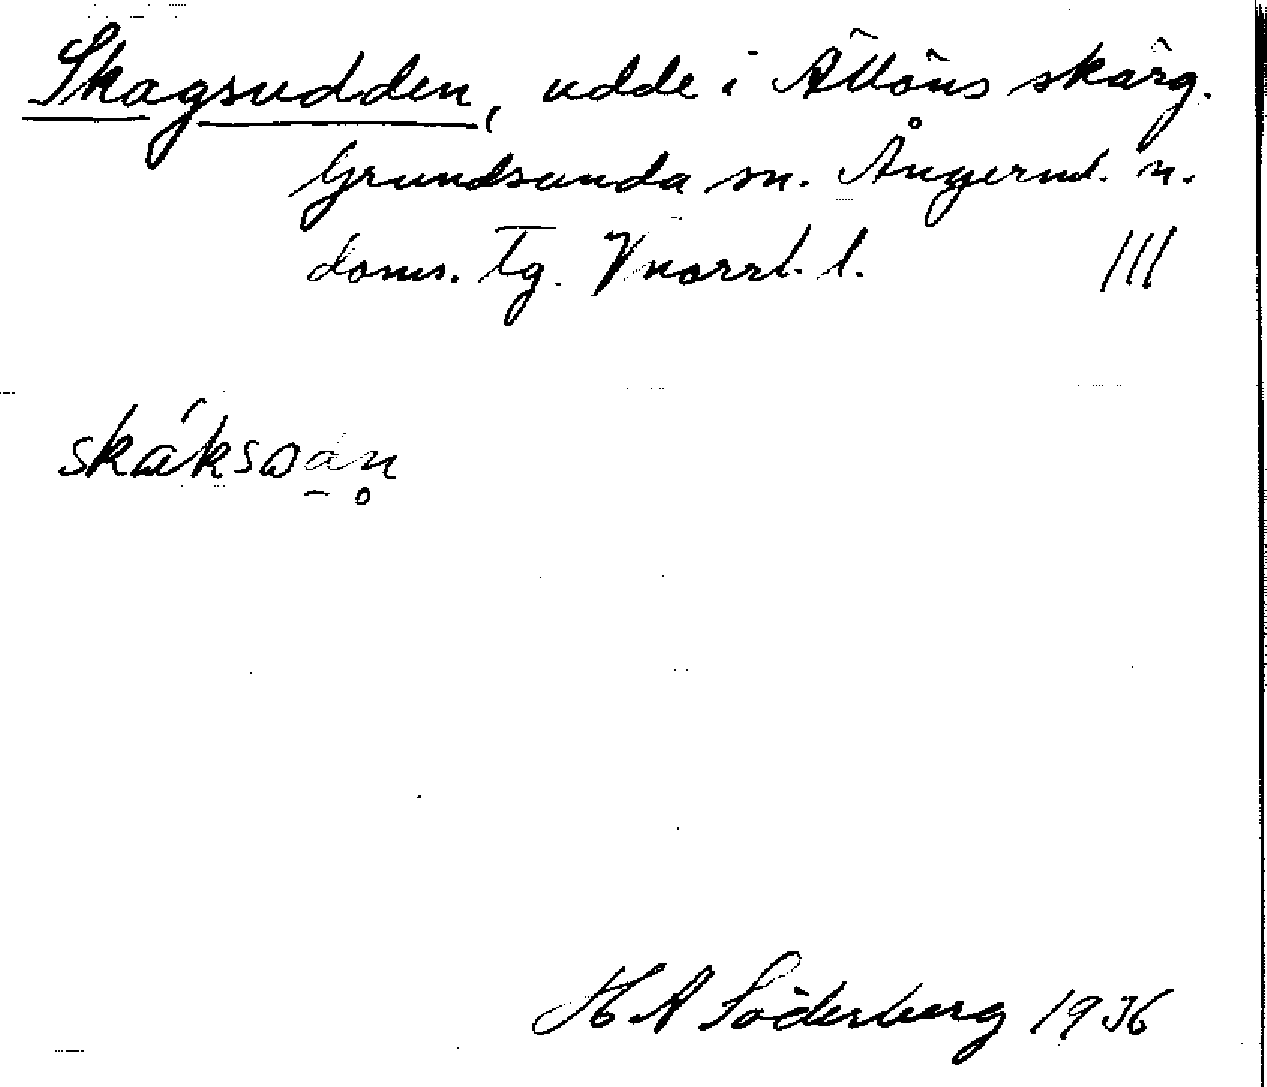 Skagsudden, udde i Ällöns skärg.
Grundsunda sn. Ångerml. n.
doms. tg. Vnorrl. l. III
H A Söderberg 1936